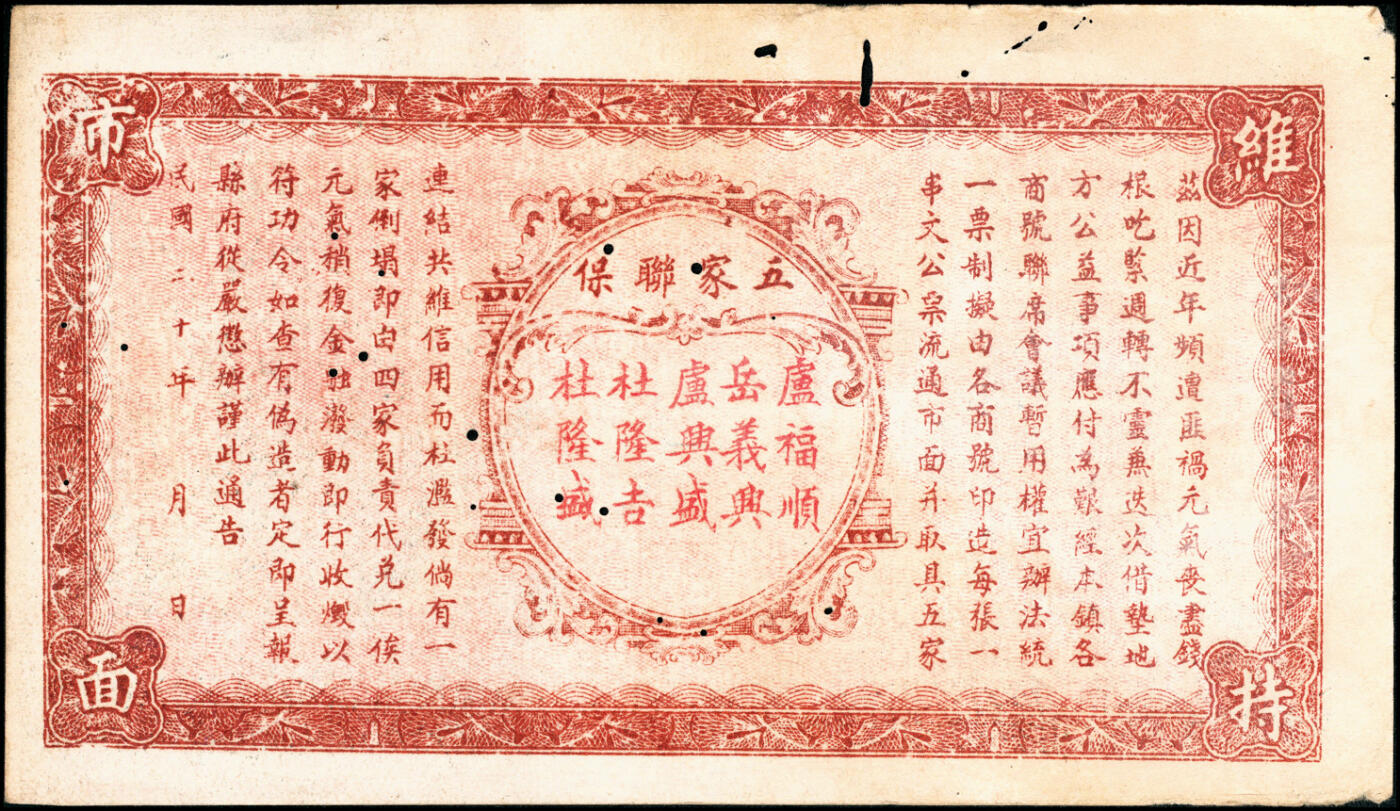 維持
市面
茲因近年頻遭匪禍元氣喪盡錢
根吃緊週轉不靈兼迭次借墊地
方公益事項應付為艱經本鎮各
商號聯席會議暫用權宜辦法統
一票制擬由各商號印造每張一
串文公票流通市面并取具五家
五家聯保
盧福順
岳義興
盧興盛
杜隆吉
杜隆盛
連結共維信用而杜濫發倘有一
家倒塌即由四家負責代兌一俟
元氣稍復金融潑動即行收燬以
符功令如查有偽造者定即呈報
縣府從嚴懲辦謹此通告
民國二十年 月 日